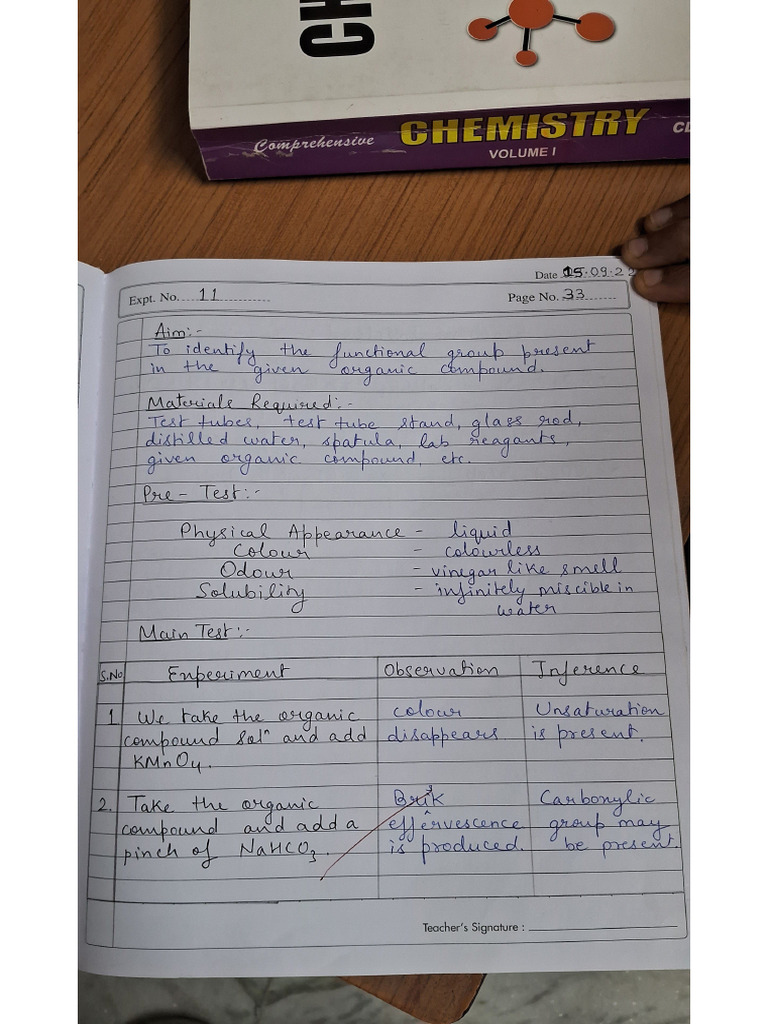 CH
Comprehensive CHEMISTRY CL
VOLUME I
Date 15.09.22
Expt. No. 11 Page No. 33
Aim:-
To identify the functional group present
in the given organic compound.
Materials Required:-
Test tubes, test tube stand, glass rod,
distilled water, spatula, lab reagants,
given organic compound, etc.
Pre - Test:-
Physical Appearance - liquid
Colour - colourless
Odour - vinegar like smell
Solubility - infinitely miscible in
water
Main Test:-
S.No Experiment Observation Inference
1 We take the organic colour Unsaturation
compound solⁿ and add disappears is present.
KMnO₄.
2. Take the organic Brisk Carboxylic
compound and add a effervescence group may
pinch of NaHCO₃. is produced. be present.
Teacher's Signature :